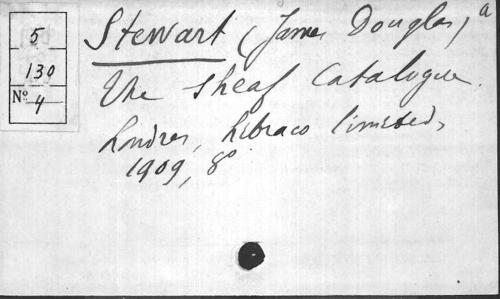 5
130
Nº 4
Stewart (James Douglas, a
The sheaf catalogue.
Londres, Libraco limited,
1909, 8º